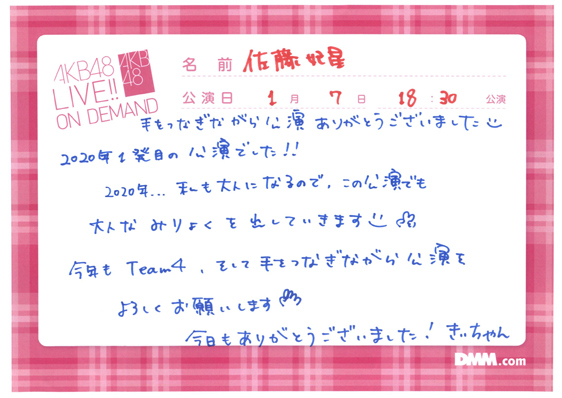 AKB48
LIVE!!
ON DEMAND
AKB
48
名前 佐藤妃星
公演日 1月 7日 18:30 公演
手をつなぎながら公演 ありがとうございました
2020年1発目の公演でした!!
2020年... 私も大人になるので、この公演でも
大人な みりょくを出していきます
今年も Team4、そして手をつなぎながら公演を
よろしくお願いします
今日もありがとうございました! きぃちゃん
DMM.com